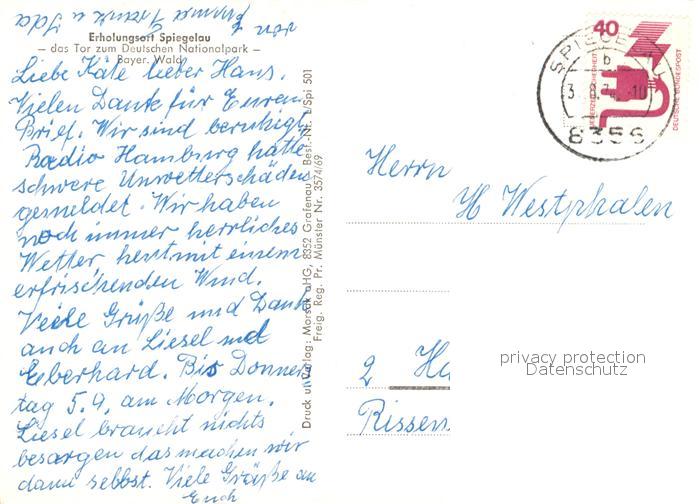 von
Emma Frank u Ida
Erholungsort Spiegelau
– das Tor zum Deutschen Nationalpark –
Bayer. Wald
Liebe Käte lieber Hans.
Vielen Dank für Euren
Brief. Wir sind beruhigt
Radio Hamburg hatte
schwere Unwetterschäden
gemeldet. Wir haben
noch immer herrliches
Wetter heut mit einem
erfrischenden Wind.
Viele Grüße und Dank
auch an Liesel und
Eberhard. Bis Donners
tag 5.9. am Morgen.
Liesel braucht nichts
besorgen das machen wir
dann selbst. Viele Grüße an
Euch
Druck und Verlag: Morsak oHG, 8352 Grafenau Best.-Nr. L/Spi 501
Freig. Reg. Pr. Münster Nr. 3574/69
SPIEGELAU
b
8356
40
DEUTSCHE BUNDESPOST
Herrn
H Westphalen
2 Ha
Rissen
privacy protection
Datenschutz